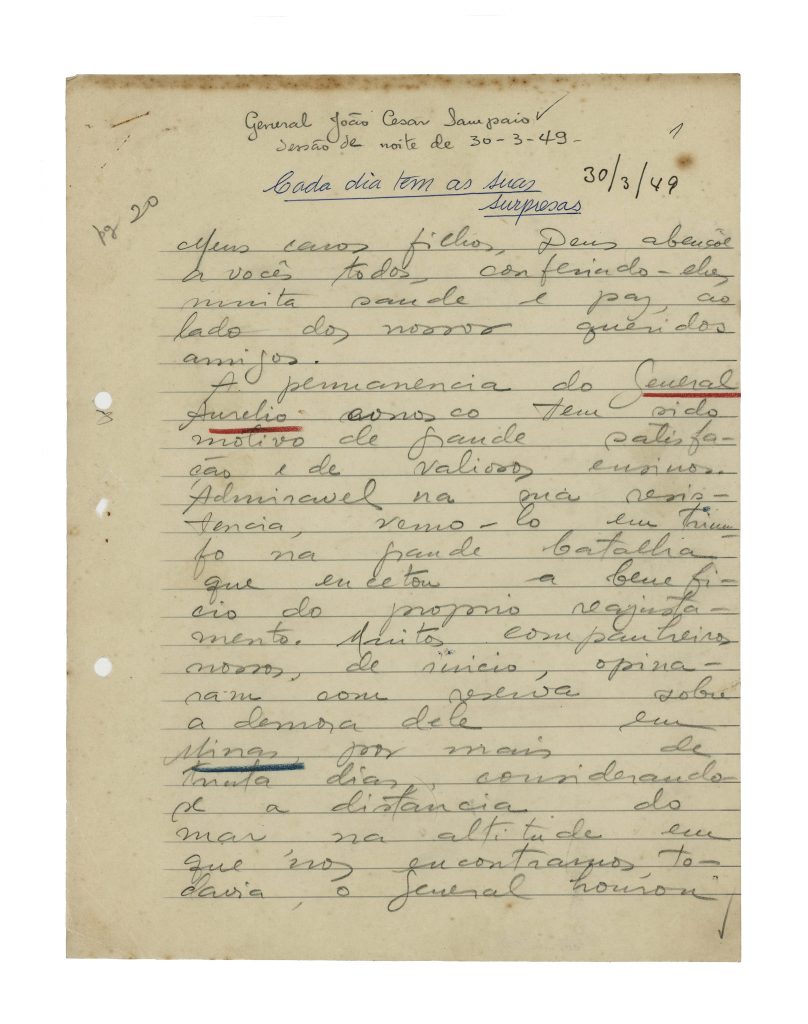 General João Cesar Sampaio
Sessão de noite de 30-3-49-
1
30/3/49
Cada dia tem as suas
surpresas
pg 20
Meus caros filhos, Deus abençõe
a vocês todos, conferindo-lhes
muita saude e paz, ao
lado dos nossos queridos
amigos.
A permanencia do General
Aurelio conosco tem sido
motivo de grande satisfa-
ção e de valiosos ensinos.
Admiravel na sua resis-
tencia, vemo-lo em triun-
fo na grande batalha
que encetou a benefi-
cio do proprio reajusta-
mento. Muitos companheiros
nossos, de inicio, opina-
ram com reserva sobre
a demora dele em
Minas, por mais de
trinta dias, considerando-
se a distância do
mar na altitude em
que nos encontramos, to-
davia, o General honrou